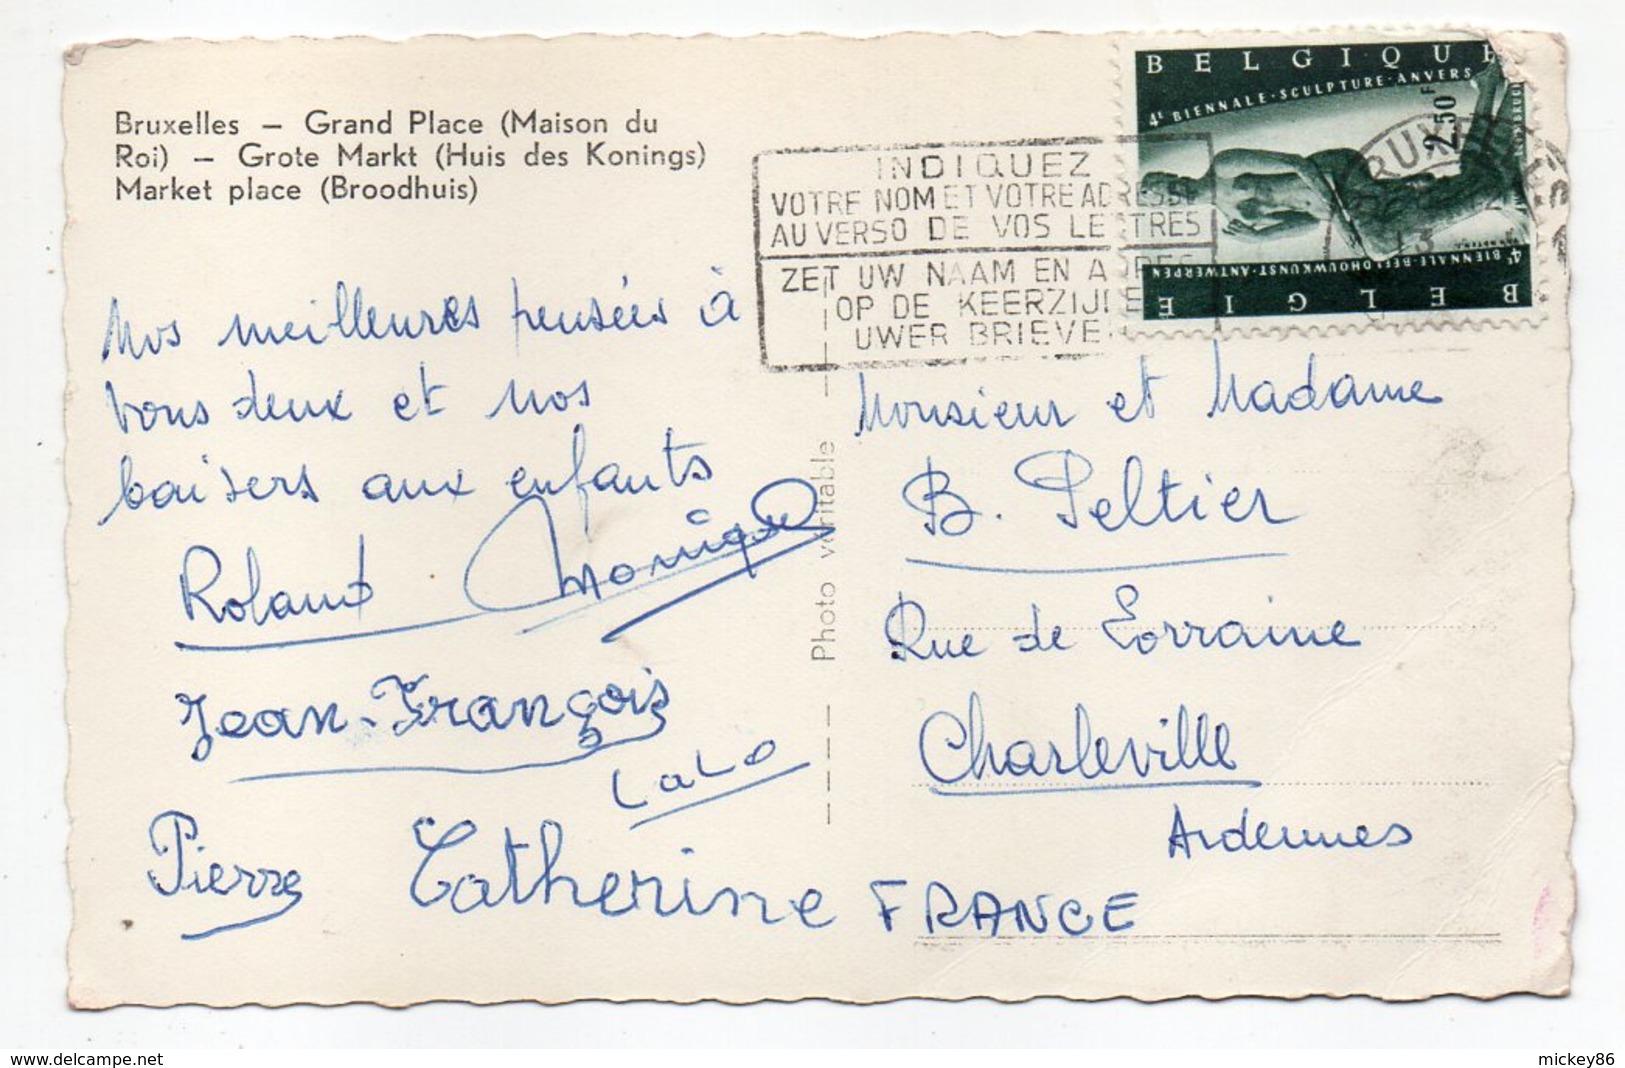 Bruxelles – Grand Place (Maison du
Roi) – Grote Markt (Huis des Konings)
Market place (Broodhuis)
BELGIQUE
4E BIENNALE·SCULPTURE·ANVERS
2,50F
4E BIENNALE-BEELDHOUWKUNST-ANTWERPEN
BELGIE
INDIQUEZ
VOTRE NOM ET VOTRE ADRESSE
AU VERSO DE VOS LETTRES
ZET UW NAAM EN ADRES
OP DE KEERZIJDE
UWER BRIEVEN
Nos meilleures pensées à
vous deux et nos
baisers aux enfants
Roland Monique
Jean-François
LaLo
Pierre Catherine
Photo véritable
Monsieur et Madame
B. Peltier
Rue de Lorraine
Charleville
Ardennes
FRANCE
www.delcampe.net
mickey86